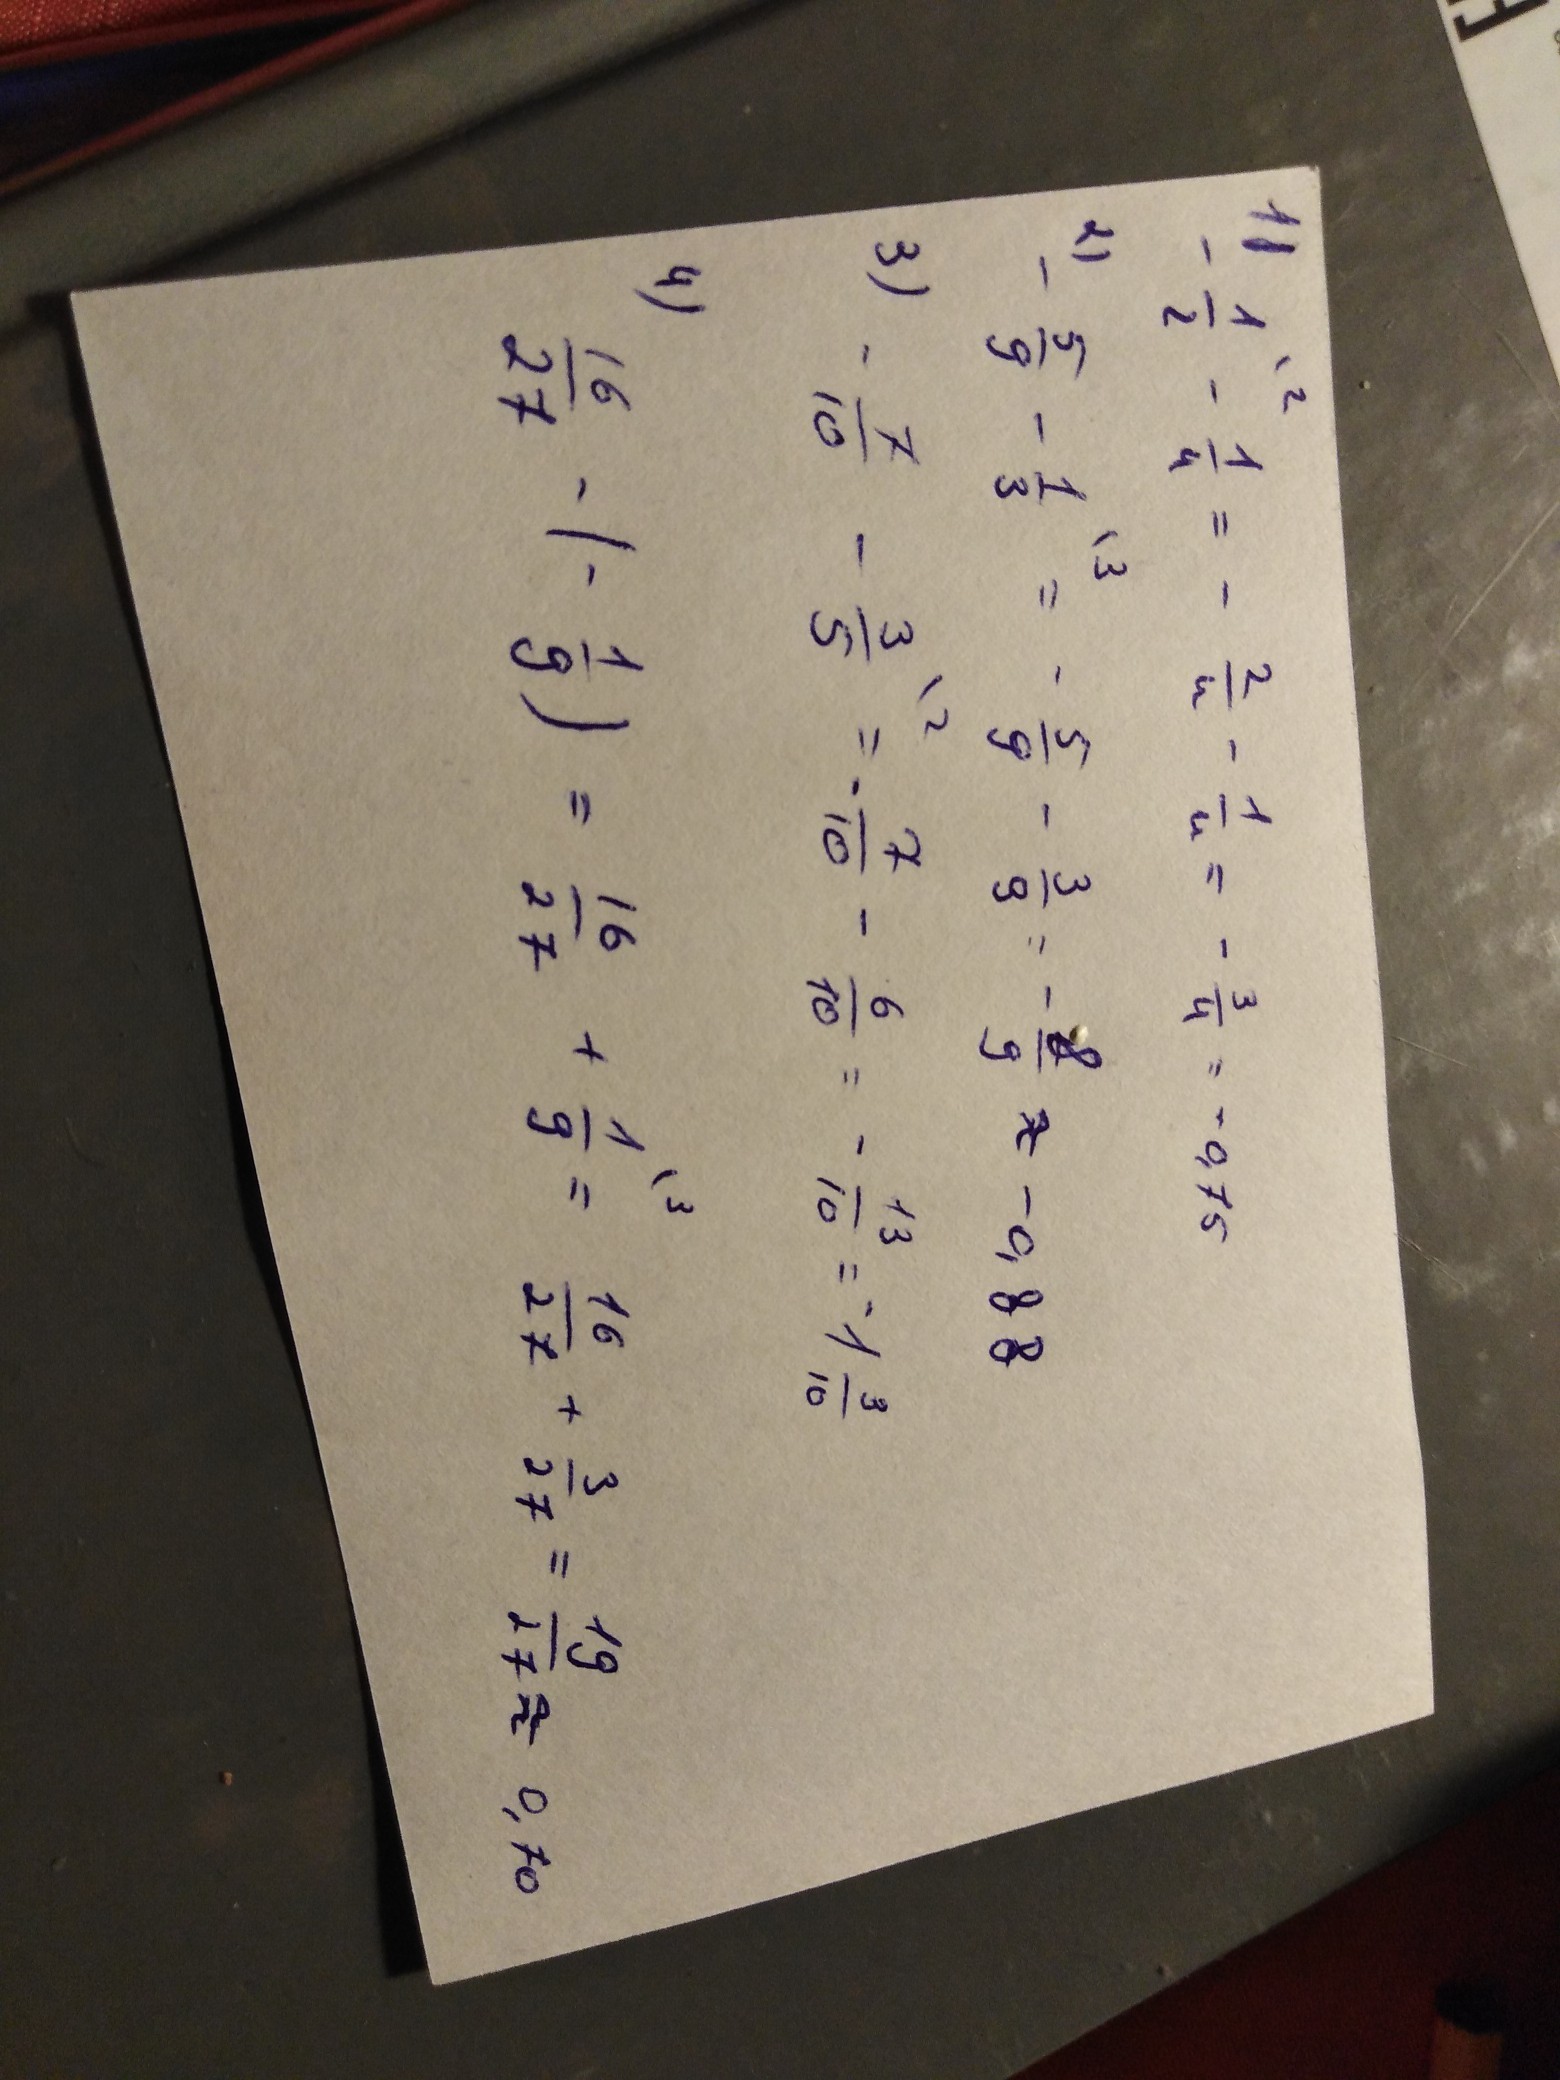 1) - 1/2 \2 - 1/4 = - 2/4 - 1/4 = - 3/4 = -0,75
2) - 5/9 - 1/3 \3 = - 5/9 - 3/9 = - 8/9 ≈ -0,88
3) - 7/10 - 3/5 \2 = - 7/10 - 6/10 = - 13/10 = -1 3/10
4) 16/27 - (- 1/9) = 16/27 + 1/9 \3 = 16/27 + 3/27 = 19/27 ≈ 0,70